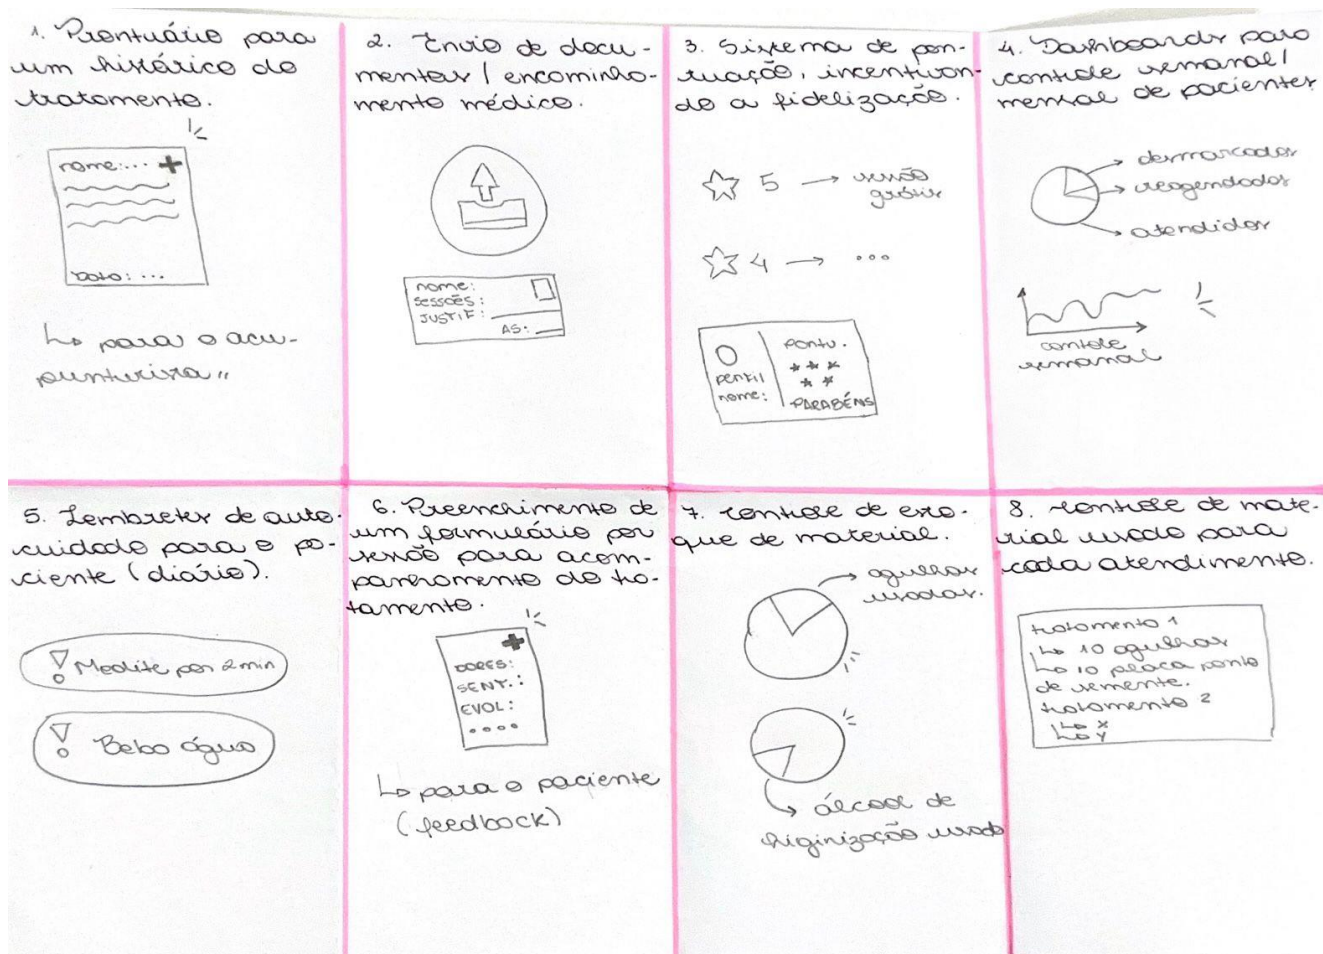 1. Prontuário para
um histórico do
tratamento.
nome:...
Data: ...
↳ para o acu-
punturista "
2. Envio de docu-
mentos / encaminha-
mento médico.
nome:
SESSÕES:
JUSTIF:
AS:
3. Sistema de pon-
tuação, incentivan-
do a fidelização.
5 → sessão
grátis
4 → ...
PERFIL
nome:
PONTU.
PARABÉNS
4. Dashboards para
controle semanal/
mensal de pacientes
desmarcados
reagendados
atendidos
controle
semanal
5. Lembretes de auto-
cuidado para o pa-
ciente (diário).
! Medite por 2 min
! Beba água
6. Preenchimento de
um formulário por
sessão para acom-
panhamento do tra-
tamento.
DORES:
SENT.:
EVOL:
....
↳ para o paciente
(feedback)
7. Controle de esto-
que de material.
agulhas
usadas.
álcool de
higinização usado
8. Controle de mate-
rial usado para
cada atendimento.
tratamento 1
↳ 10 agulhas
↳ 10 placa ponto
de semente.
tratamento 2
↳ X
↳ Y